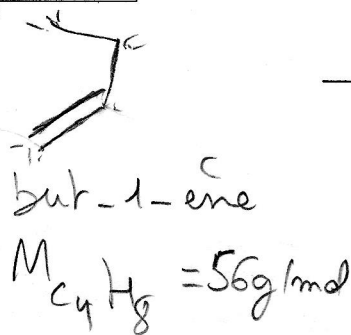 but-1-ene
M C4H8 = 56g/mol